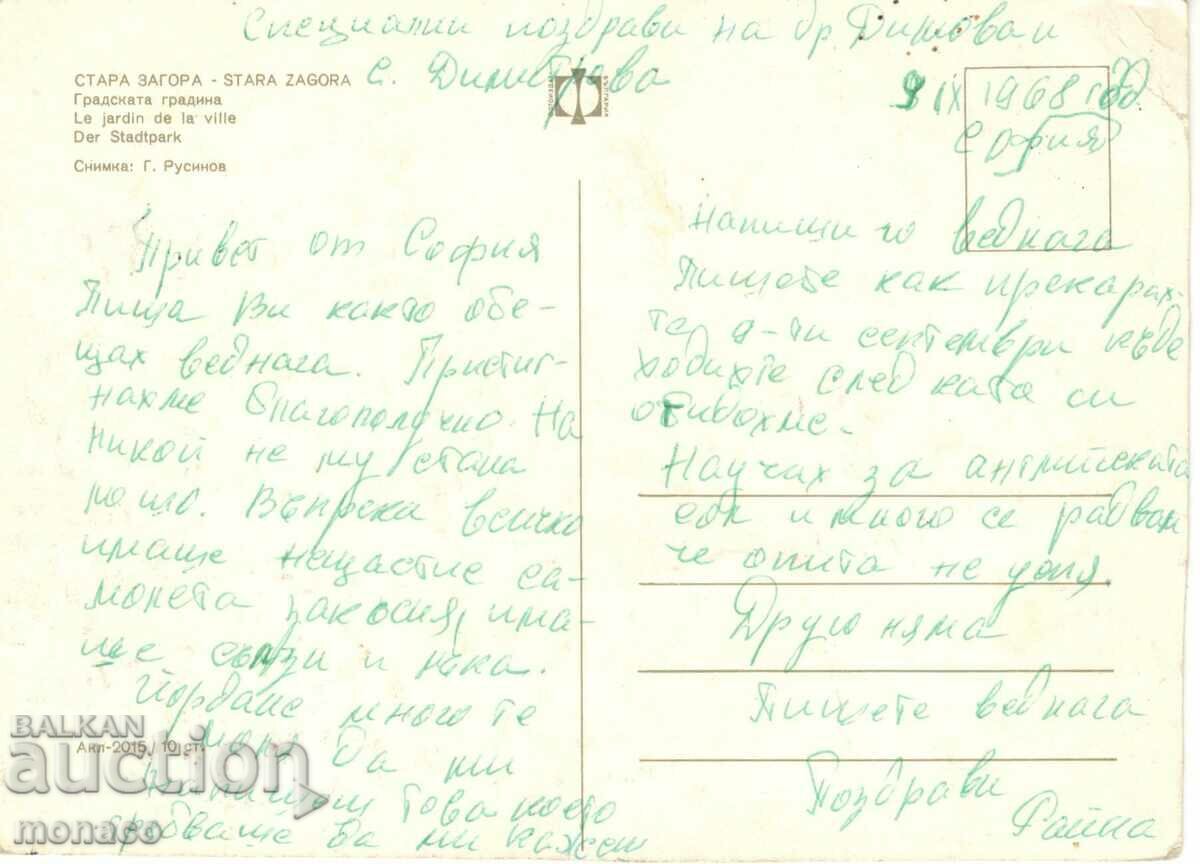 Специални поздрави на др. Димова и
с. Димитрова
СТАРА ЗАГОРА - STARA ZAGORA
Градската градина
Le jardin de la ville
Der Stadtpark
Снимка: Г. Русинов
9 IX 1968 год
София
Привет от София
Пиша Ви както обе-
щах веднага. Пристиг-
нахме благополучно. На
никой не му стана
лошо. Въпреки всичко
имаше нещастие са-
молета закосня, има-
ше сълзи и
Йордане много те
моля да ми
напишеш това което
трябваше да ми кажеш
Напиши го веднага
Пишете как прекарах-
те 9-ти септември къде
ходихте след като си
отидохме.
Научих за английската
и много се радвам
че опита не успя
Друго няма
Пишете веднага
Поздрави
Райна
Акл-2015/10 ст.
BALKAN
auction
monaco